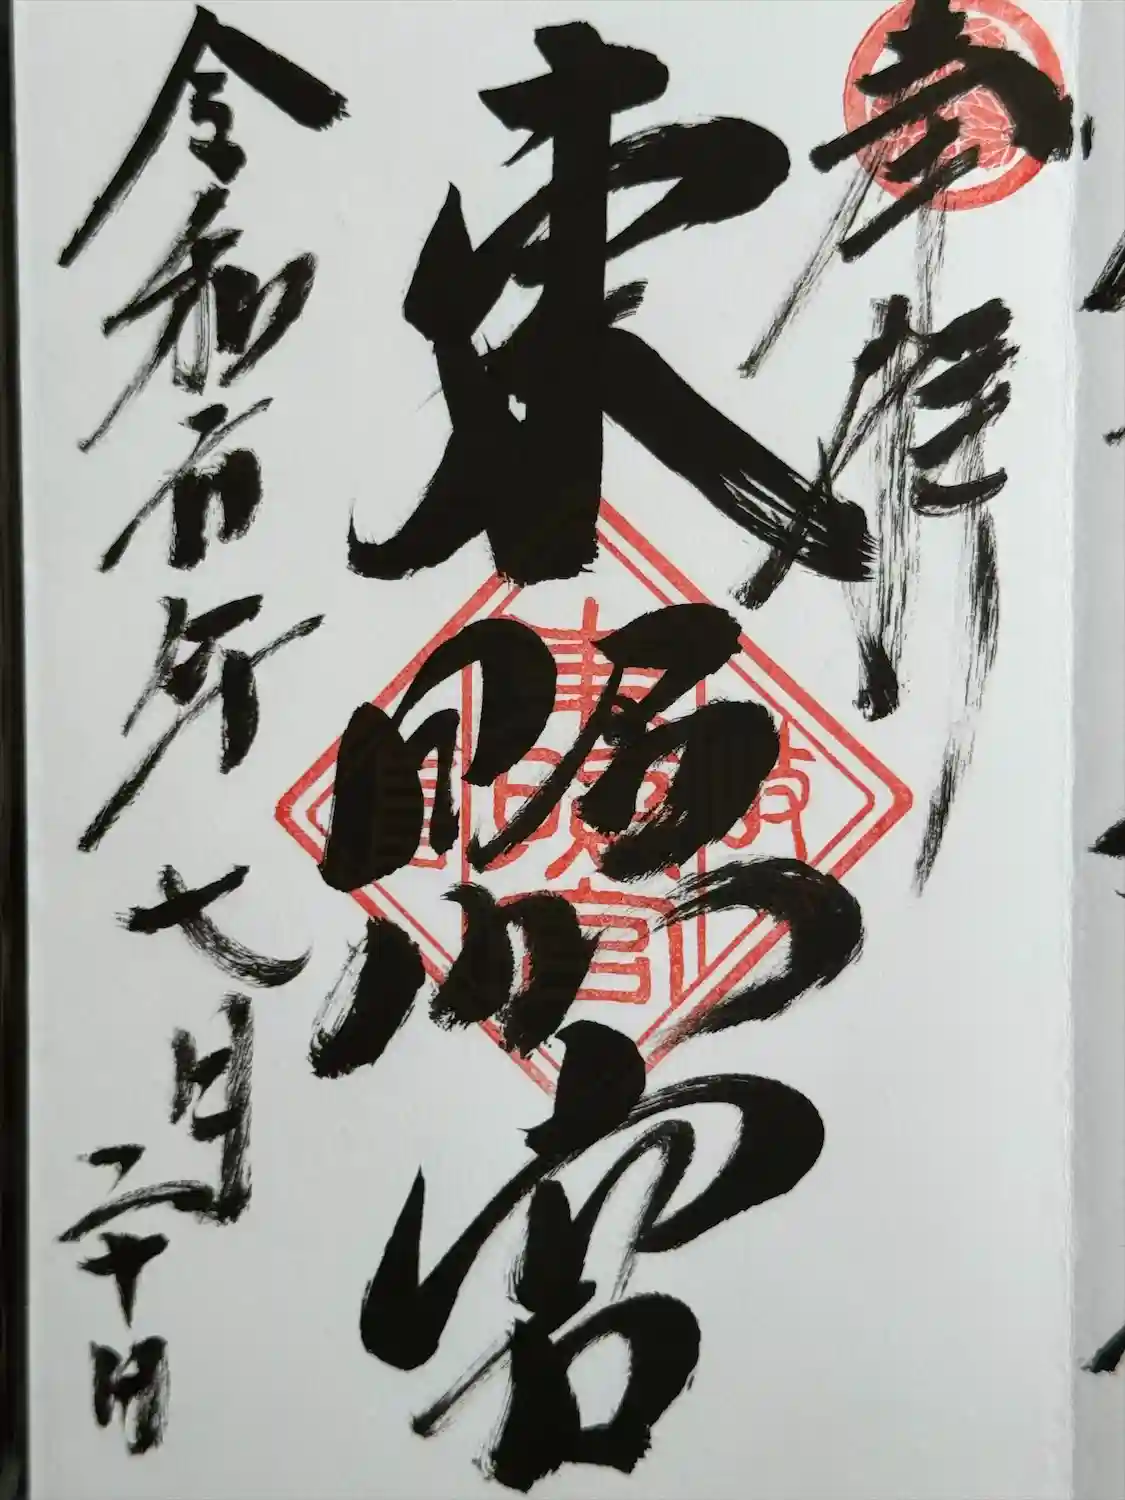 奉拝
東照宮
東照宮
令和年七月二十日